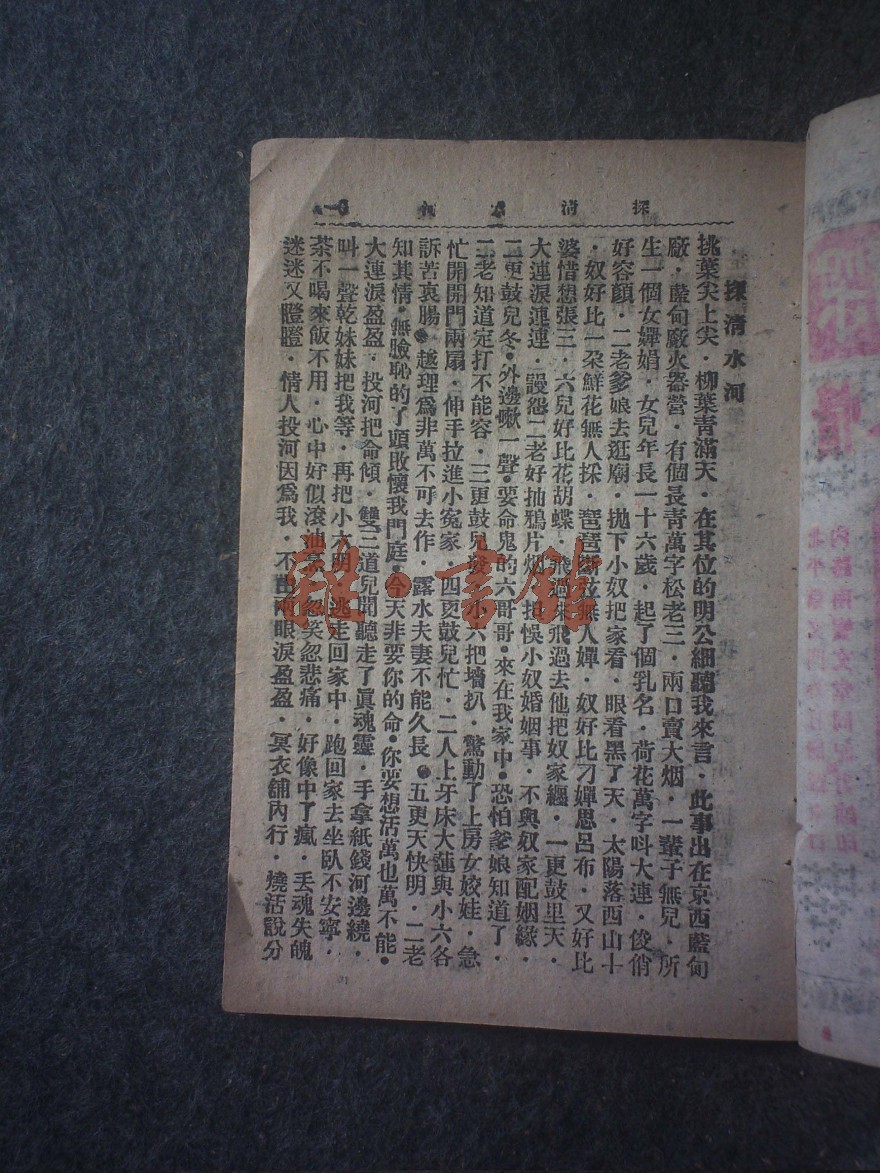 探清水河
探清水河
挑葉尖上尖·柳葉青滿天·在其位的明公細聽我來言·此事出在京西藍甸
廠·藍甸廠火器營·有個長青萬字松老三·兩口賣大烟·一輩子無兒·所
生一個女嬋娟·女兒年長一十六歲·起了個乳名·荷花萬字呌大連·俊俏
好容顏·二老爹娘去逛廟·拋下小奴把家看·眼看黑了天·太陽落西山十
·奴好比一朶鮮花無人採·琵琶斷弦無人嬋·奴好比刁嬋思呂布·又好比
婆惜想張三·六兒好比花胡蝶·飛過來飛過去他把奴家纏·一更鼓里天·
大連淚連連·謾怨二老好抽鴉片烟·担悞小奴婚姻事·不與奴家配姻緣·
二更鼓兒冬·外邊嗽一聲·要命鬼的六哥哥·來在我家中·恐怕爹娘知道了·
二老知道定打不能容·三更鼓兒·小六把墻扒·驚動了上房女姣娃·急
忙開開門兩扇·伸手拉進小冤家·四更鼓兒忙·二人上牙床大蓮與小六各
訴苦衷腸·越理爲非萬不可去作·露水夫妻不能久長·五更天快明·二老
知其情·無臉恥的了頭敗懷我門庭·今天非要你的命·你要想活萬也萬不能·
大連淚盈盈·投河把命傾·雙三道兒聞聽走了眞魂靈·手拿紙錢河邊繞·
叫一聲乾妹妹把我等·再把小六明·逃走回家中·跑回家去坐臥不安寧·
茶不喝來飯不用·心中好似滾油烹·忽笑忽悲痛·好像中了瘋·丢魂失魄
迷迷又瞪瞪·情人投河因爲我·不由兩眼淚盈盈·冥衣舖內行·燒活說分
雜·書館